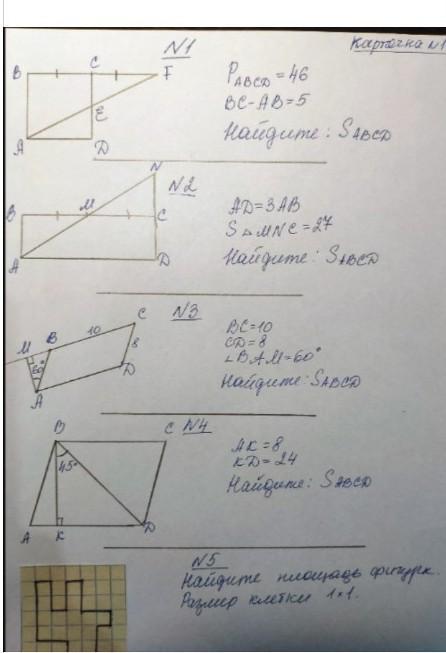 Карточка №1
№1
B C F
E
A D
P ABCD = 46
BC - AB = 5
Найдите: S ABCD
№2
N
B M C
A D
AD = 3AB
S △ MNC = 27
Найдите: S ABCD
№3
M B 10 C
8
60°
A D
BC = 10
CD = 8
∠BAM = 60°
Найдите: S ABCD
№4
B C
45°
A K D
AK = 8
KD = 24
Найдите: S ABCD
№5
Найдите площадь фигуры.
Размер клетки 1×1.